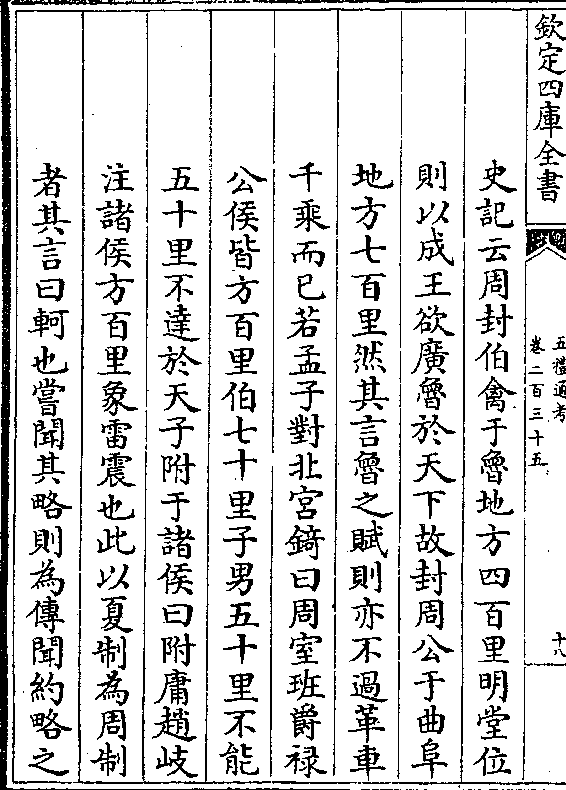 欽定四庫全書
五禮通考
卷二百三十五
十八
史記云周封伯禽于魯地方四百里明堂位
則以成王欲廣魯於天下故封周公于曲阜
地方七百里然其言魯之賦則亦不過革車
千乘而已若孟子對北宮錡曰周室班爵禄
公侯皆方百里伯七十里子男五十里不能
五十里不達於天子附于諸侯曰附庸趙岐
注諸侯方百里象雷震也此以夏制為周制
者其言曰軻也嘗聞其略則為傳聞約略之